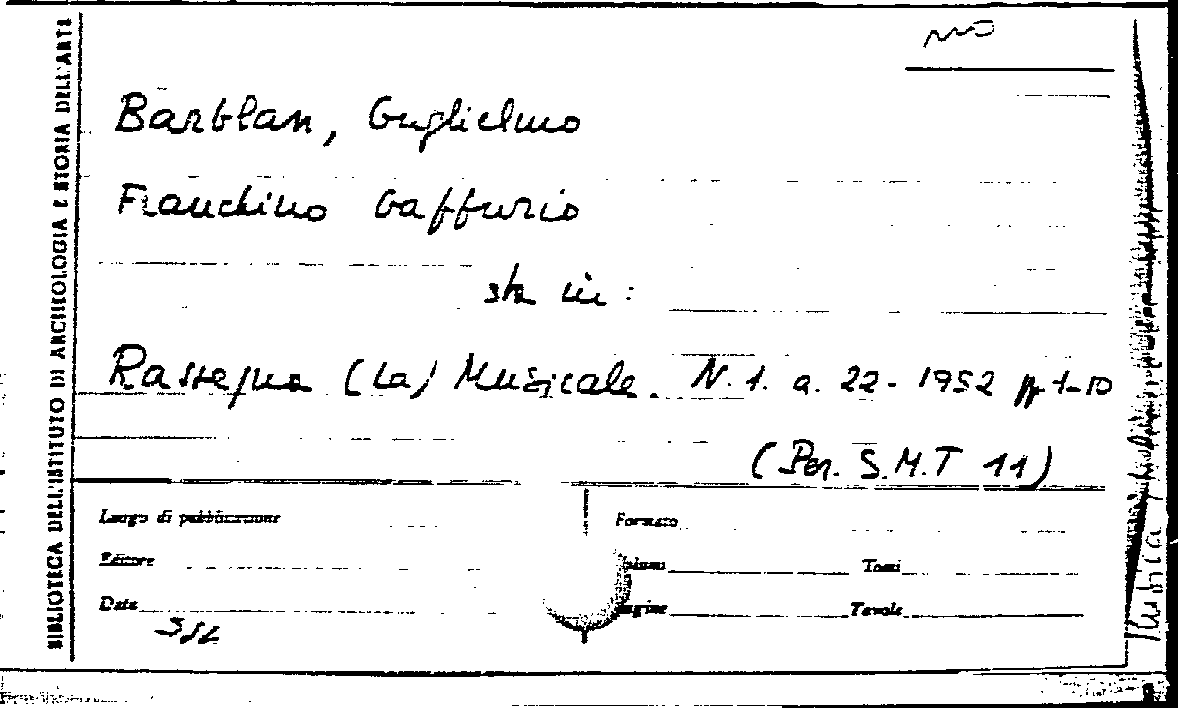 BIBLIOTECA DELL'ISTITUTO DI ARCHEOLOGIA E STORIA DELL'ARTE
Barblan, Guglielmo
Franchino Gaffurio
sta in:
Rassegna (La) Musicale. N. 1. a. 22 - 1952 pp 1-10
(Per. S.M.T 11)
Luogo di pubblicazione
Formato
Editore
Volumi
Tomi
Data
Pagine
Tavole